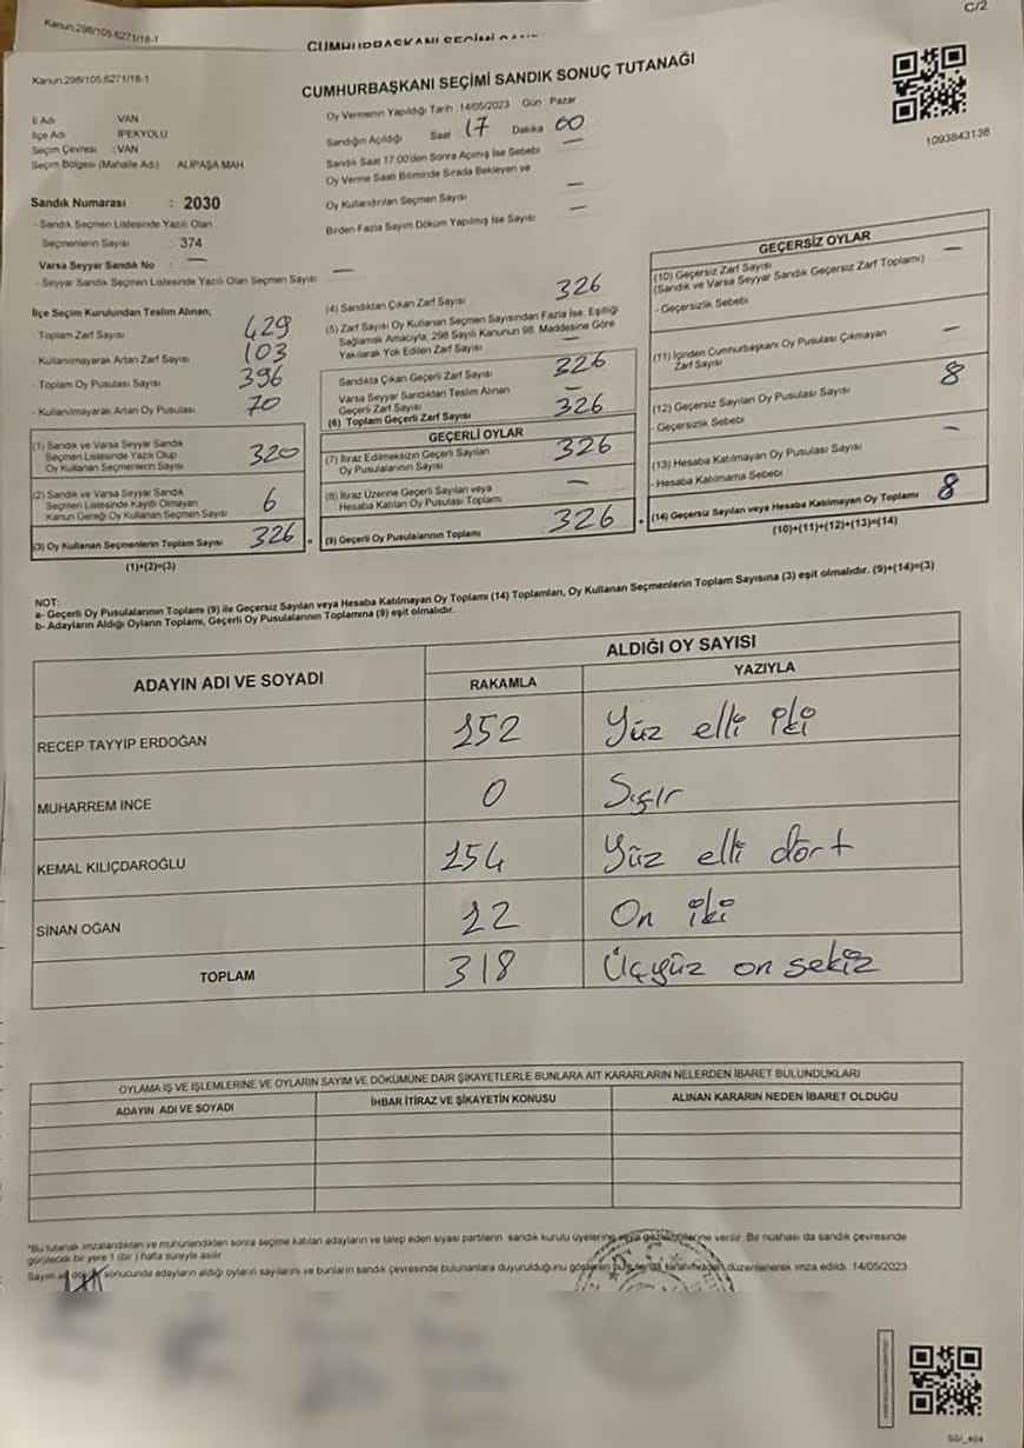 Kanun:298/105.6271/18-1
C/2
Kanun:298/105.6271/18-1
CUMHURBAŞKANI SEÇİMİ SANDIK SONUÇ TUTANAĞI
İl Adı VAN
İlçe Adı İPEKYOLU
Seçim Çevresi :VAN
Seçim Bölgesi (Mahalle Adı) ALİPAŞA MAH
Sandık Numarası : 2030
- Sandık Seçmen Listesinde Yazılı Olan
Seçmenlerin Sayısı : 374
Varsa Seyyar Sandık No : —
- Seyyar Sandık Seçmen Listesinde Yazılı Olan Seçmen Sayısı —
Oy Vermenin Yapıldığı Tarih :14/05/2023 Gün : Pazar
Sandığın Açıldığı Saat 17 Dakika 00
Sandık Saat 17:00'den Sonra Açılmış İse Sebebi —
Oy Verme Saati Bitiminde Sırada Bekleyen ve
Oy Kullandırılan Seçmen Sayısı —
Birden Fazla Sayım Döküm Yapılmış İse Sayısı —
1093843136
İlçe Seçim Kurulundan Teslim Alınan;
- Toplam Zarf Sayısı 429
- Kullanılmayarak Artan Zarf Sayısı 103
- Toplam Oy Pusulası Sayısı 396
- Kullanılmayarak Artan Oy Pusulası 70
(1) Sandık ve Varsa Seyyar Sandık
Seçmen Listesinde Yazılı Olup
Oy Kullanan Seçmenlerin Sayısı 320
(2) Sandık ve Varsa Seyyar Sandık
Seçmen Listesinde Kayıtlı Olmayan
Kanun Gereği Oy Kullanan Seçmen Sayısı 6
(3) Oy Kullanan Seçmenlerin Toplam Sayısı 326
(1)+(2)=(3)
(4) Sandıktan Çıkan Zarf Sayısı 326
(5) Zarf Sayısı Oy Kullanan Seçmen Sayısından Fazla İse, Eşitliği
Sağlamak Amacıyla, 298 Sayılı Kanunun 98. Maddesine Göre
Yakılarak Yok Edilen Zarf Sayısı —
Sandıkta Çıkan Geçerli Zarf Sayısı 326
Varsa Seyyar Sandıktan Teslim Alınan
Geçerli Zarf Sayısı —
(6) Toplam Geçerli Zarf Sayısı 326
GEÇERLİ OYLAR
(7) İtiraz Edilmeksizin Geçerli Sayılan
Oy Pusulalarının Sayısı 326
(8) İtiraz Üzerine Geçerli Sayılan veya
Hesaba Katılan Oy Pusulası Toplamı —
(9) Geçerli Oy Pusulalarının Toplamı 326
GEÇERSİZ OYLAR
(10) Geçersiz Zarf Sayısı —
(Sandık ve Varsa Seyyar Sandık Geçersiz Zarf Toplamı)
- Geçersizlik Sebebi
(11) İçinden Cumhurbaşkanı Oy Pusulası Çıkmayan
Zarf Sayısı —
(12) Geçersiz Sayılan Oy Pusulası Sayısı 8
- Geçersizlik Sebebi
(13) Hesaba Katılmayan Oy Pusulası Sayısı —
- Hesaba Katılmama Sebebi
(14) Geçersiz Sayılan veya Hesaba Katılmayan Oy Toplamı 8
(10)+(11)+(12)+(13)=(14)
NOT:
a- Geçerli Oy Pusulalarının Toplamı (9) ile Geçersiz Sayılan veya Hesaba Katılmayan Oy Toplamı (14) Toplamları, Oy Kullanan Seçmenlerin Toplam Sayısına (3) eşit olmalıdır. (9)+(14)=(3)
b- Adayların Aldığı Oyların Toplamı, Geçerli Oy Pusulalarının Toplamına (9) eşit olmalıdır.
ADAYIN ADI VE SOYADI
ALDIĞI OY SAYISI
RAKAMLA YAZIYLA
RECEP TAYYİP ERDOĞAN 152 Yüz elli iki
MUHARREM İNCE 0 Sıfır
KEMAL KILIÇDAROĞLU 154 Yüz elli dört
SİNAN OĞAN 12 On iki
TOPLAM 318 Üçyüz on sekiz
OYLAMA İŞ VE İŞLEMLERİNE VE OYLARIN SAYIM VE DÖKÜMÜNE DAİR ŞİKAYETLERLE BUNLARA AİT KARARLARIN NELERDEN İBARET BULUNDUKLARI
ADAYIN ADI VE SOYADI İHBAR İTİRAZ VE ŞİKAYETİN KONUSU ALINAN KARARIN NEDEN İBARET OLDUĞU
*Bu tutanak imzalandıktan ve mühürlendikten sonra seçime katılan adayların ve talep eden siyasi partilerin sandık kurulu üyelerine veya gözlemcilerine verilir. Bir nüshası da sandık çevresinde
görülecek bir yere 1 (bir) hafta süreyle asılır.
Sayım ve döküm sonucunda adayların aldığı oyların sayılarını ve bunların sandık çevresinde bulunanlara duyurulduğunu gösteren düzenlenerek imza edildi. 14/05/2023